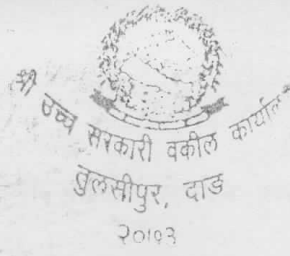 श्री उच्च सरकारी वकील कार्यालय
तुलसीपुर, दाङ
२०७३